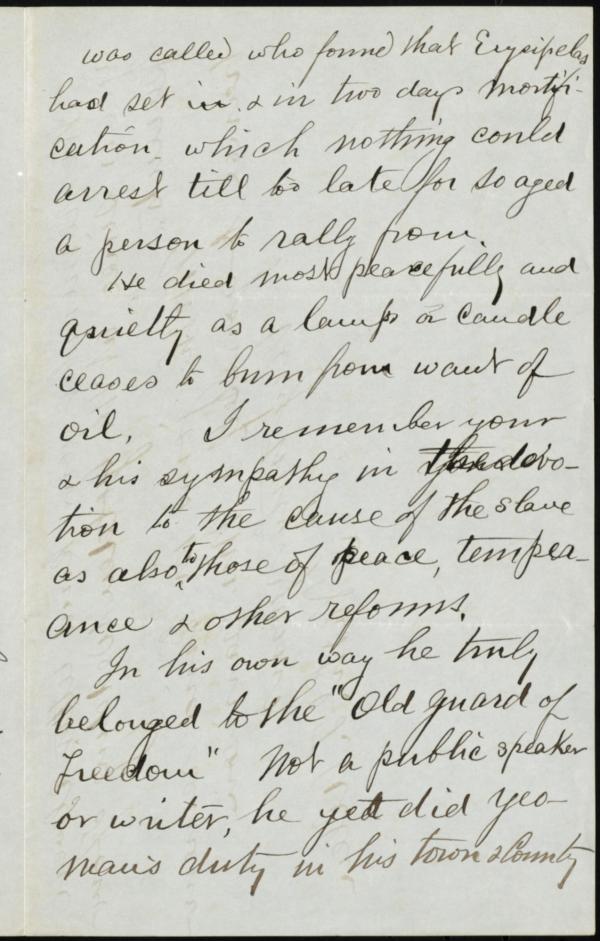 was called who found that Erysipelas
had set in & in two days mortifi-
cation which nothing could
arrest till too late for so aged
a person to rally from.
He died most peacefully and
quietly as a lamp or candle
ceases to burn from want of
oil. I remember your
& his sympathy in devo-
tion to the cause of the slave
as also to those of peace, temper-
ance & other reforms.
In his own way he truly
belonged to the "Old guard of
Freedom" Not a public speaker
or writer, he yet did yeo-
man's duty in his town & County